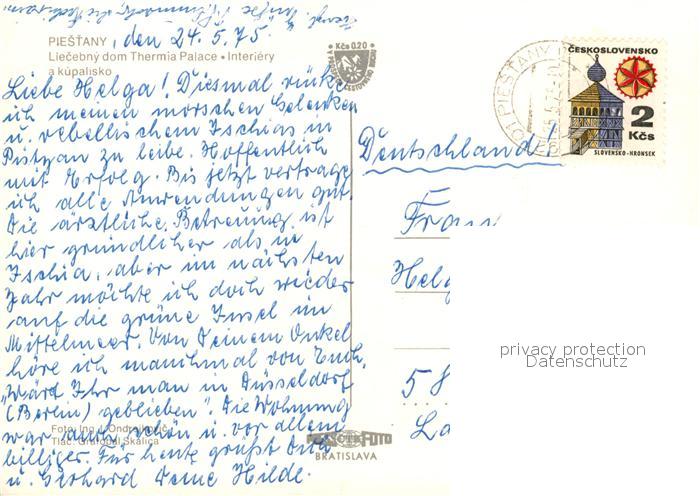 PIEŠŤANY, den 24.5.75.
Liečebný dom Thermia Palace • Interiéry
a kúpalisko
Kčs 0,20
ČESKOSLOVENSKO
2
Kčs
SLOVENSKO-HRONSEK
Liebe Helga! Diesmal rücke
ich meinen morschen Gelenken
u. rebellischem Ischias in
Pistyan zu leibe. Hoffentlich
mit Erfolg. Bis jetzt vertrage
ich alle Anwendungen gut.
Die ärztliche Betreuung ist
hier gründlicher als in
Ischia, aber im nächsten
Jahr möchte ich doch wieder
auf die grüne Insel im
Mittelmeer. Von Deinem Onkel
höre ich manchmal von Euch.
"Wärd Ihr man in Düsseldorf
(Berlin) geblieben". Die Wohnung
war auch schön u. vor allem
billiger. Für heute grüßt
u. Gerhard Deine Hilde.
Deutschland!
Frau
Helg
5
La
privacy protection
Datenschutz
Foto: Ing. J. Ondrejkovič
Tlač: Grafobal Skalica
ČTK FOTO
BRATISLAVA